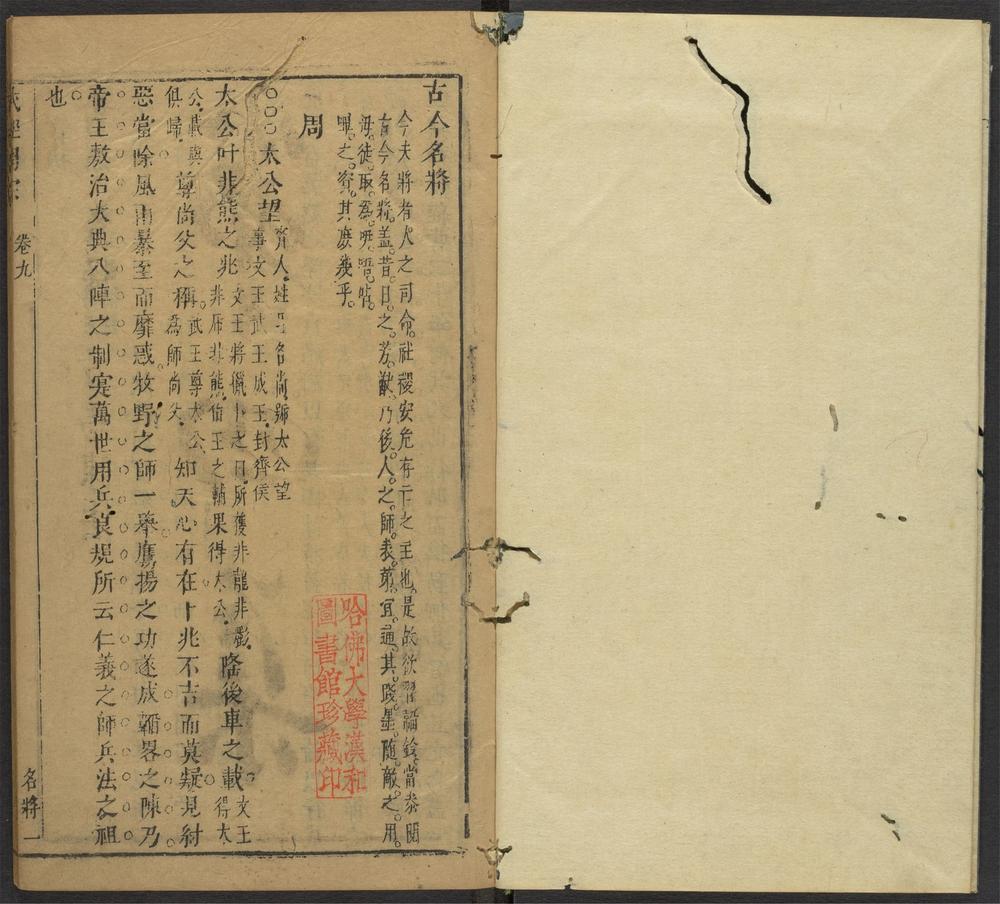 古今名將
今夫將者人之司命社稷安危存亡之主也是故欲習韜鈐當泰閱
古今名將盖昔日之芳猷乃後人之師表第宜通其踐墨随敵之用
毋徒取為呫嗶
之資其庶幾乎
周
太公望 齊人姓 名尚號太公望
事文王武王成王封齊侯
太公叶非熊之兆 文王將獵卜之曰所獲非龍非彲
非羆非熊 王之輔果得太公 隆後車之載 文王
得太
公載與
俱歸 尊尚父之稱 武王尊太公
為師尚父 知天心有在卜兆不吉而莫疑見紂
惡當除風雨暴至而靡惑牧野之師一舉鷹揚之功遂成韜畧之陳乃
帝王敷治大典八陣之制寔萬世用兵良規所云仁義之師兵法之祖
也
卷九
名將一
哈佛大學漢和
圖書館珍藏印